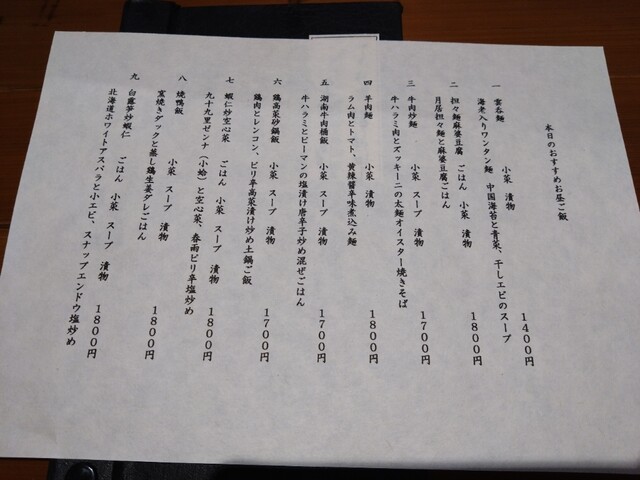 本日のおすすめお昼ご飯
一 雲呑麺 小菜 漬物
海老入りワンタン麺 中国海苔と青菜、干しエビのスープ
1400円
二 担々麺麻婆豆腐 ごはん 小菜 漬物
月居担々麺と麻婆豆腐ごはん
1800円
三 牛肉炒麺 小菜 スープ 漬物
牛ハラミ肉とズッキーニの太麺オイスター焼きそば
1700円
四 羊肉麺 小菜 漬物
ラム肉とトマト、黄辣醤辛味煮込み麺
1800円
五 湖南牛肉桶飯 小菜 スープ 漬物
牛ハラミとピーマンの塩漬け唐辛子炒め混ぜごはん
1700円
六 鶏高菜砂鍋飯 小菜 スープ 漬物
鶏肉とレンコン、ピリ辛高菜漬け炒め土鍋ご飯
1700円
七 蝦仁炒空心菜 ごはん 小菜 スープ 漬物
九十九里ゼンナ（小蛤）と空心菜、春雨ピリ辛塩炒め
1800円
八 焼鴨飯 小菜 スープ 漬物
窯焼きダックと蒸し鶏生姜ダレごはん
1800円
九 白露笋炒蝦仁 ごはん 小菜 スープ 漬物
北海道ホワイトアスパラと小エビ、スナップエンドウ塩炒め
1800円